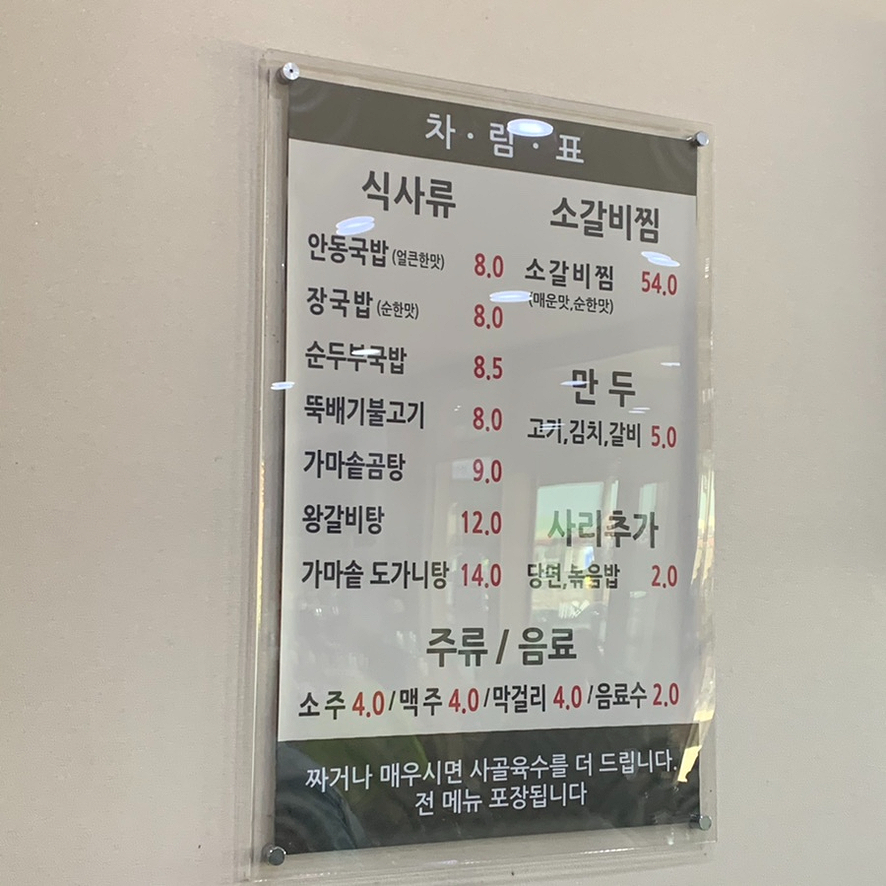 차·림·표
식사류
안동국밥 (얼큰한맛) 8.0
장국밥 (순한맛) 8.0
순두부국밥 8.5
뚝배기불고기 8.0
가마솥곰탕 9.0
왕갈비탕 12.0
가마솥 도가니탕 14.0
소갈비찜
소갈비찜 54.0
(매운맛,순한맛)
만두
고기,김치,갈비 5.0
사리추가
당면,볶음밥 2.0
주류 / 음료
소주 4.0/맥주 4.0/막걸리 4.0/음료수 2.0
짜거나 매우시면 사골육수를 더 드립니다.
전 메뉴 포장됩니다